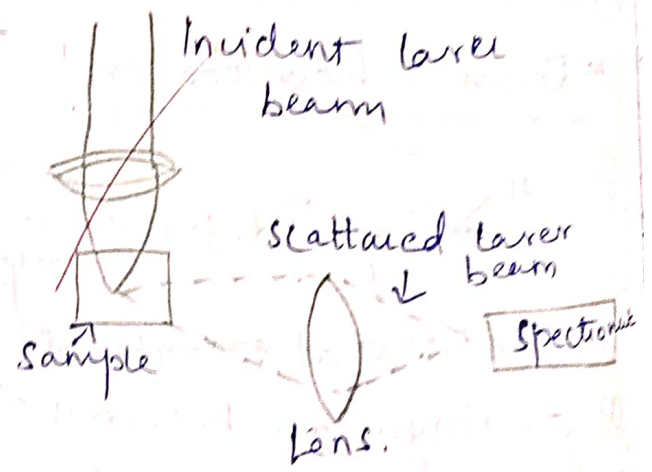 Incident laser
beam
Scattared laser
beam
Sample
Spectromet
Lens.